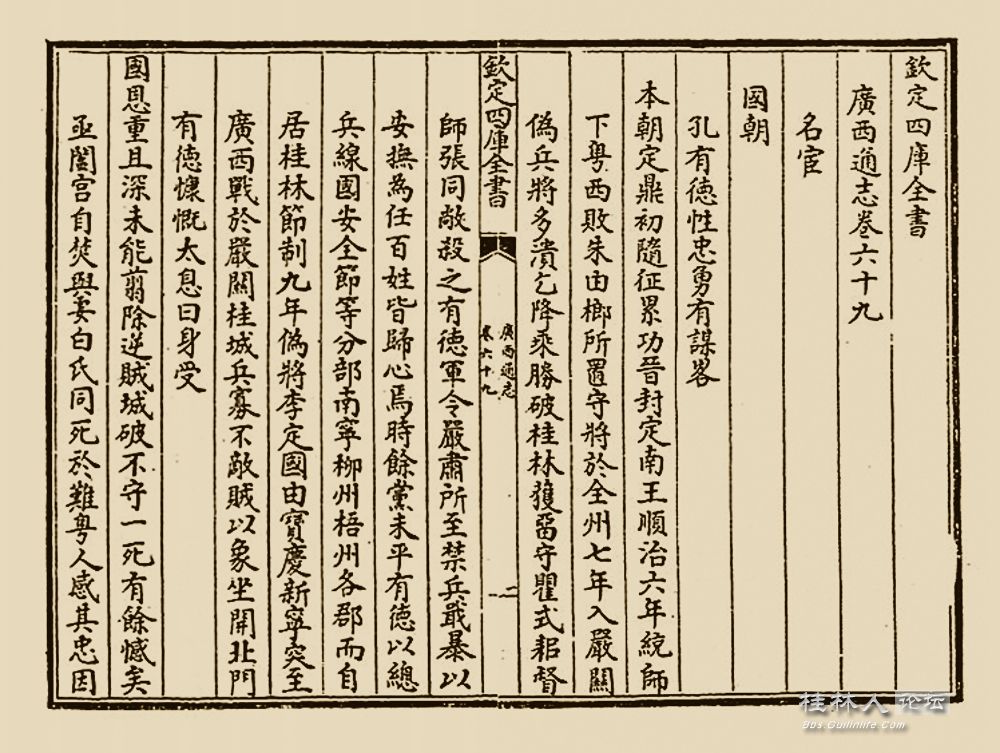 欽定四庫全書
廣西通志卷六十九
名宦
國朝
孔有德性忠勇有謀畧
本朝定鼎初隨征累功晉封定南王順治六年統師
下粤西敗朱由榔所置守將於全州七年入嚴關
偽兵將多潰乞降乘勝破桂林獲留守瞿式耜督
欽定四庫全書
廣西通志
卷六十九
二
師張同敞殺之有德軍令嚴肅所至禁兵戢暴以
安撫為任百姓皆歸心焉時餘黨未平有德以總
兵線國安全節等分部南寧柳州梧州各郡而自
居桂林節制九年偽將李定國由寶慶新寧突至
廣西戰於嚴關桂城兵寡不敵賊以象坐開北門
有德慷慨太息曰身受
國恩重且深未能翦除逆賊城破不守一死有餘憾矣
亟闔宫自焚與妻白氏同死於難粤人感其忠因
桂林人论坛
Bbs.Guilinlife.Com